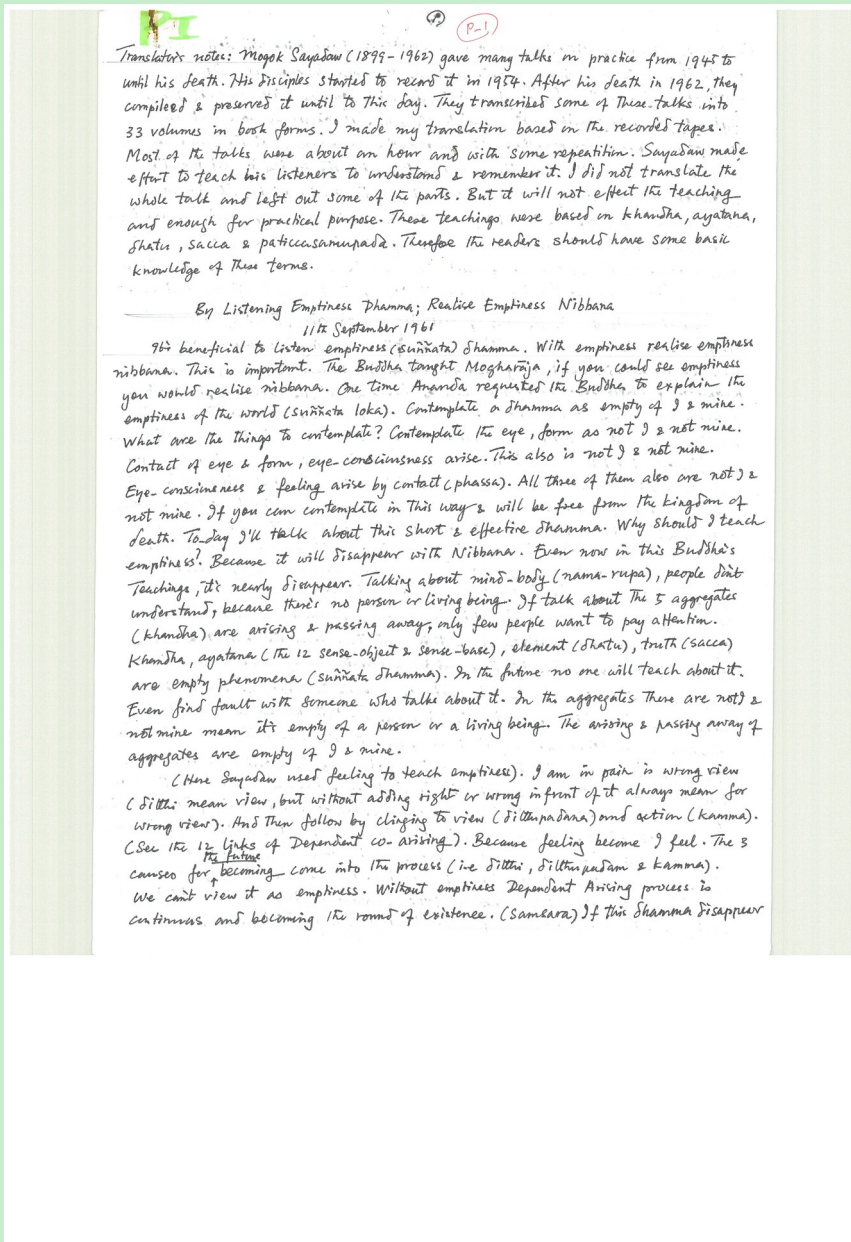 PI
P-1
Translator's notes: Mogok Sayadaw (1899-1962) gave many talks on practice from 1945 to
until his death. His disciples started to record it in 1954. After his death in 1962, they
compileed & preserved it until to this day. They transcribed some of these talks into
33 volumes in book forms. I made my translation based on the recorded tapes.
Most of the talks were about an hour and with some repeatition. Sayadaw made
effort to teach his listeners to understand & remember it. I did not translate the
whole talk and left out some of the parts. But it will not effect the teaching
and enough for practical purpose. These teachings were based on khandha, ayatana,
dhatu, sacca & paticcasamupada. Therefoe the readers should have some basic
knowledge of these terms.
By Listening Emptiness Dhamma; Realise Emptiness Nibbana
11th September 1961
It's beneficial to listen emptiness (suññata) dhamma. With emptiness realise emptiness
nibbana. This is important. The Buddha taught Mogharāja, if you could see emptiness
you would realise nibbana. One time Ananda requested the Buddha to explain the
emptiness of the world (suññata loka). Contemplate a dhamma as empty of I & mine.
What are the things to contemplate? Contemplate the eye, form as not I & not mine.
Contact of eye & form, eye-consciousness arise. This also is not I & not mine.
Eye-consciousness & feeling arise by contact (phassa). All three of them also are not I &
not mine. If you can contemplate in this way & will be free from the kingdom of
death. To-day I'll talk about this short & effective dhamma. Why should I teach
emptiness? Because it will disappear with Nibbana. Even now in this Buddha's
Teachings, it's nearly disappear. Talking about mind-body (nama-rupa), people don't
understand, because there's no person or living being. If talk about the 5 aggregates
(khandha) are arising & passing away, only few people want to pay attention.
Khandha, ayatana (the 12 sense-object & sense-base), element (dhatu), truth (sacca)
are empty phenomena (suññata dhamma). In the future no one will teach about it.
Even find fault with someone who talks about it. In the aggregates there are not I &
not mine mean it's empty of a person or a living being. The arising & passing away of
aggregates are empty of I & mine.
(Here Sayadaw used feeling to teach emptiness). I am in pain is wrong view
(ditthi mean view, but without adding right or wrong infront of it always mean for
wrong view). And then follow by clinging to view (ditthupadana) and action (kamma).
(See the 12 links of Dependent co-arising). Because feeling become I feel. The 3
causes for the future becoming come into the process (i.e ditthi, ditthupadam & kamma).
We can't view it as emptiness. Without emptiness Dependent Arising process is
continues and becoming the round of existence. (samsara) If this dhamma disappear